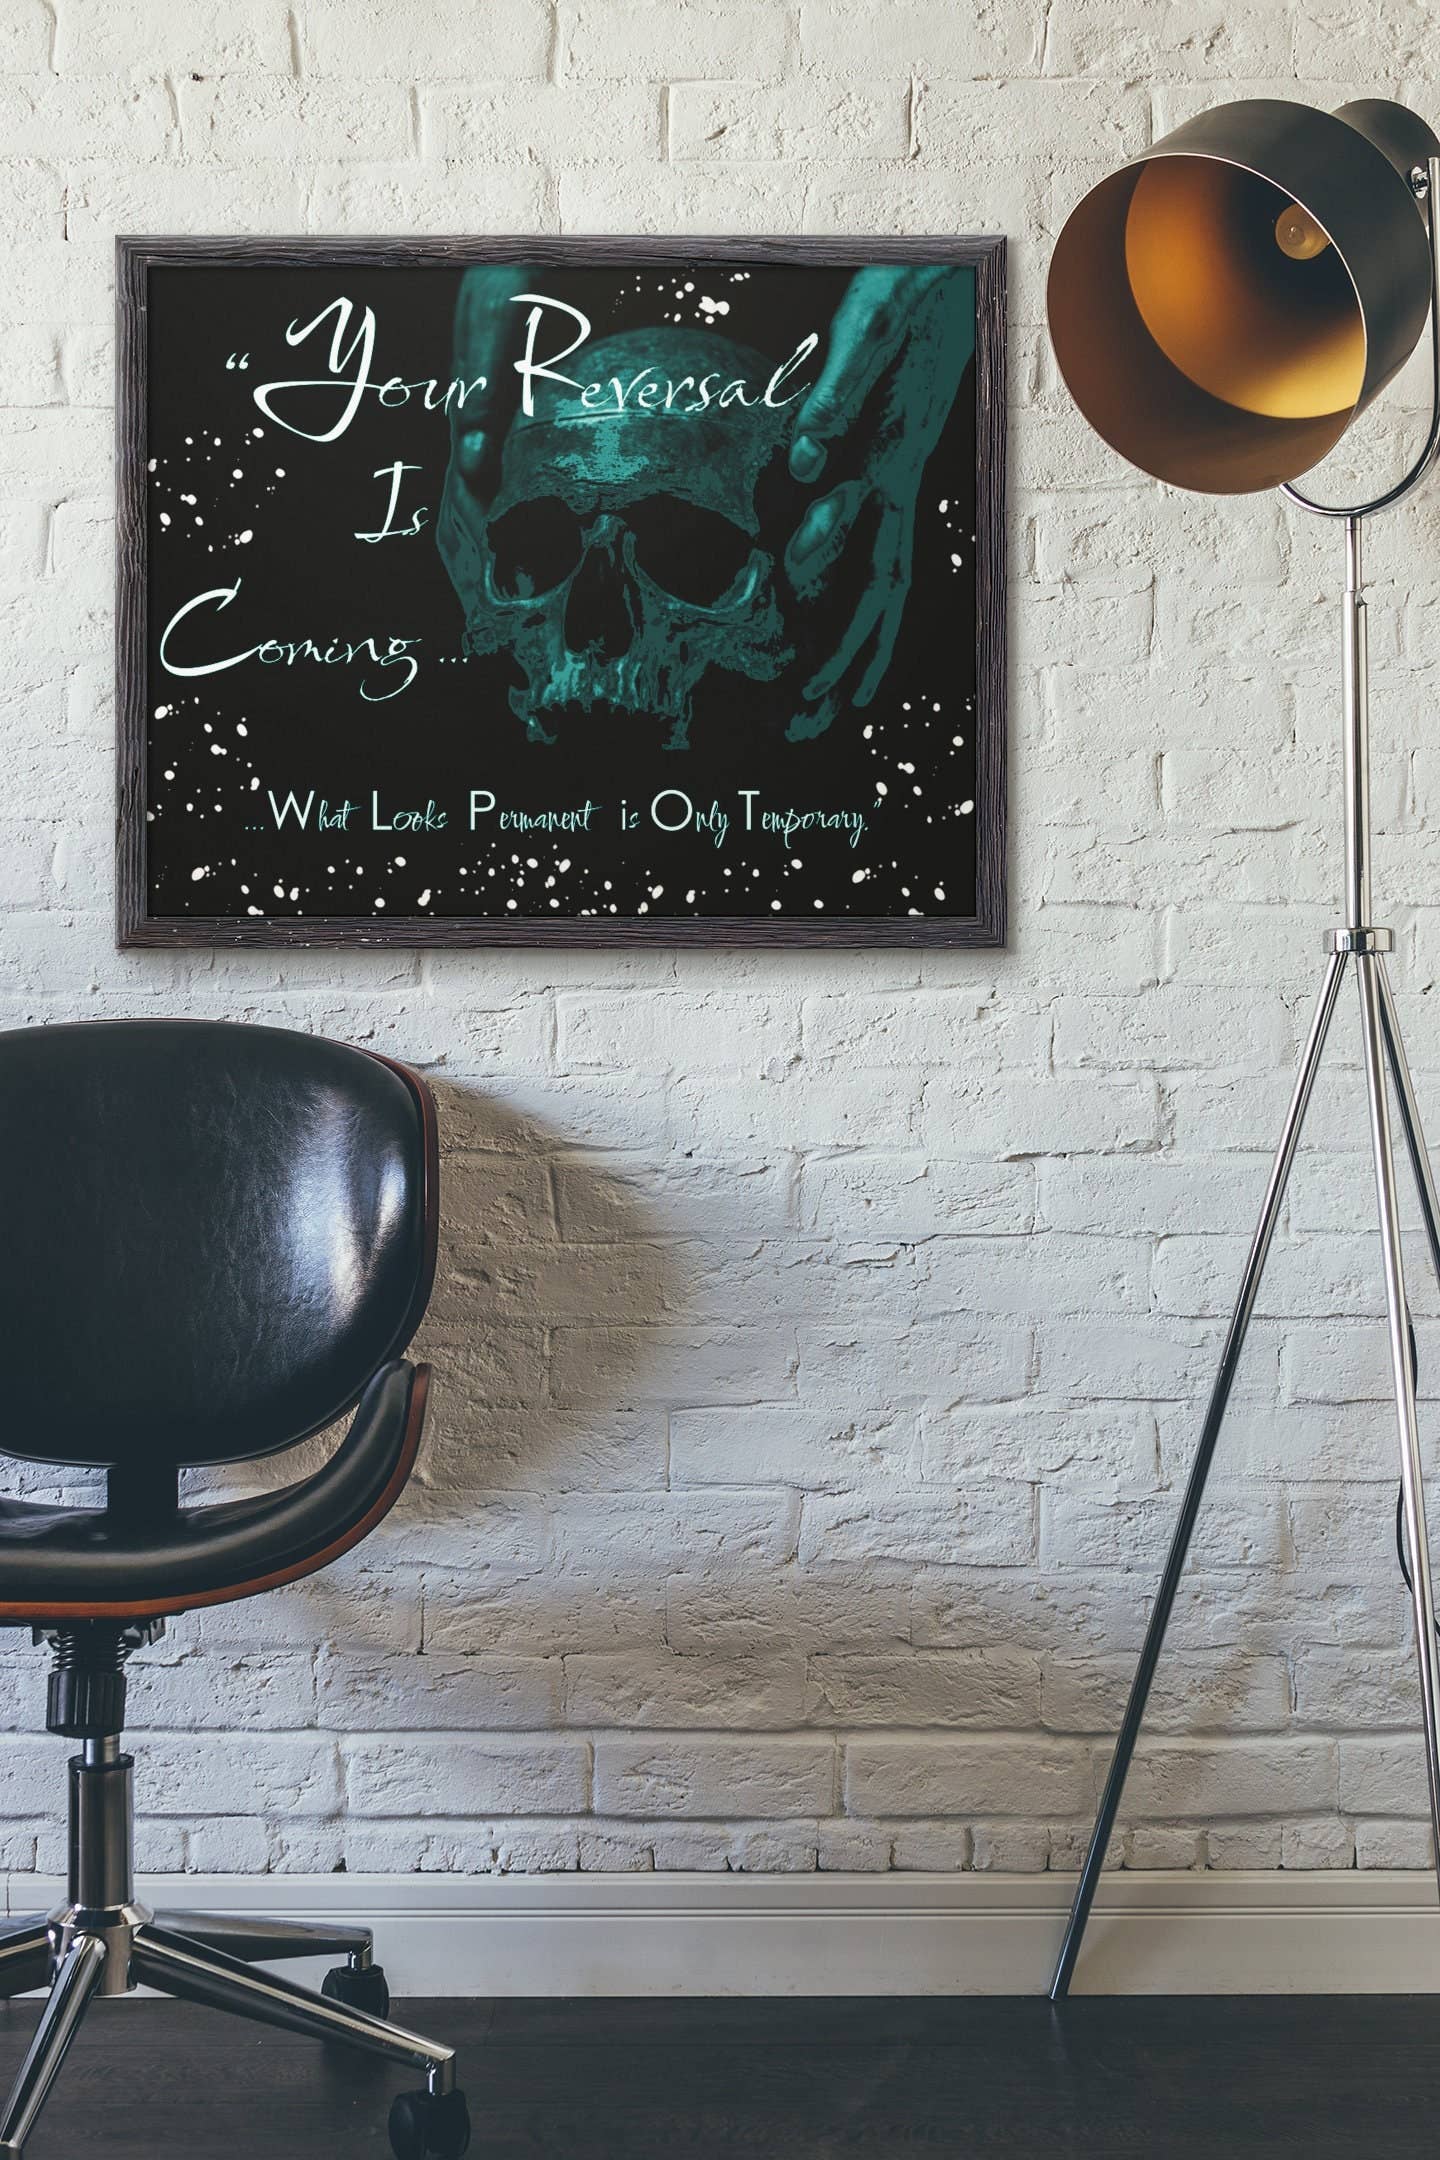 “Your Reversal
Is
Coming...
...What Looks Permanent is Only Temporary.”